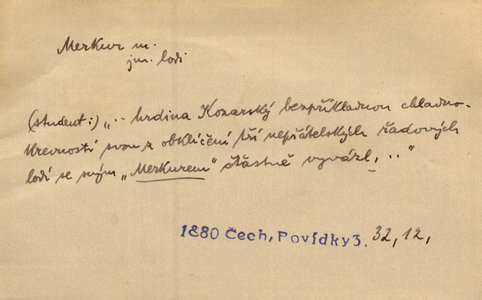 Merkur m.
jm. lodi
(student:) „.. hrdina Kozarský bezpříkladnou chladno-
krevností svou z obklíčení tří nepřátelských řadových
lodí se svým „Merkurem“ šťastně vyvázl, ..“
1880 Čech, Povídky 3. 32, 12,